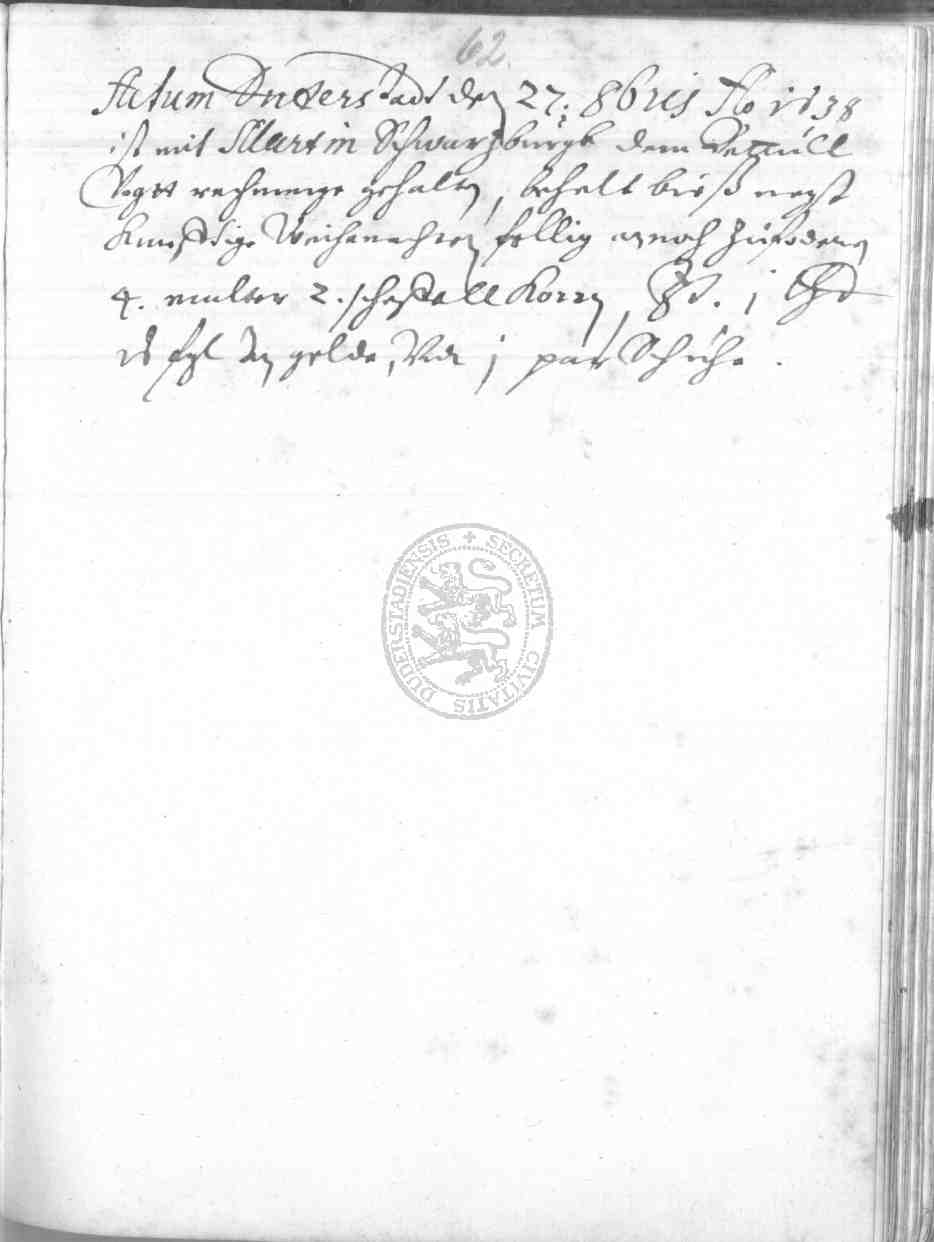 62.
Actum Duderstadt den 27: 8bris Ao 1638
ist mit Martin Schwarzburgk dem
Vogtt rechnunge gehalten, behelt bies negst
Kunfftige Weihenachten fellig annoch zufodern
4. malter 2. scheffell Korn, j
gelde, Vnd j par Schuhe.
DUDERSTADIENSIS + SECRETUM CIVITATIS